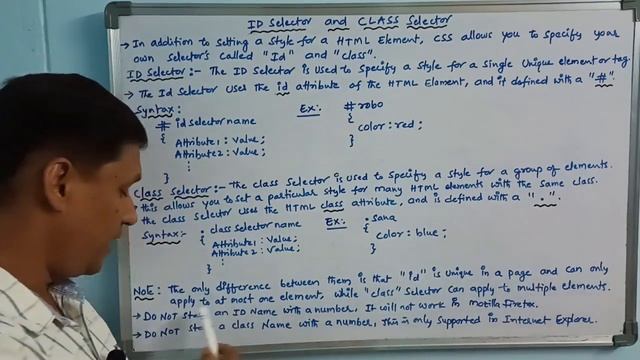 ID Selector and CLASS Selector
→ In addition to setting a style for a HTML Element, CSS allows you to specify your
own selector's called "Id" and "class".
ID Selector :- The ID Selector is used to specify a style for a single unique element or tag.
→ The Id Selector uses the id attribute of the HTML Element, and it defined with a "#".
Syntax: Ex:- #robo
# id selector name {
{ color : red ;
Attribute1 : value; }
Attribute2 : value;
⋮
}
Class Selector :- The class selector is used to specify a style for a group of elements.
This allows you to set a particular style for many HTML elements with the same class.
The class selector uses the HTML class attribute, and is defined with a "."
Syntax:- . class selector name Ex:- .sana
{ {
Attribute1 : value; color : blue ;
Attribute2 : value; }
⋮
}
NOTE: The only difference between them is that "id" is unique in a page and can only
apply to at most one element, while "class" selector can apply to multiple elements.
→ Do NOT start an ID Name with a number, It will not work in Mozilla firefox.
→ Do NOT start a class Name with a number, This is only supported in Internet Explorer.